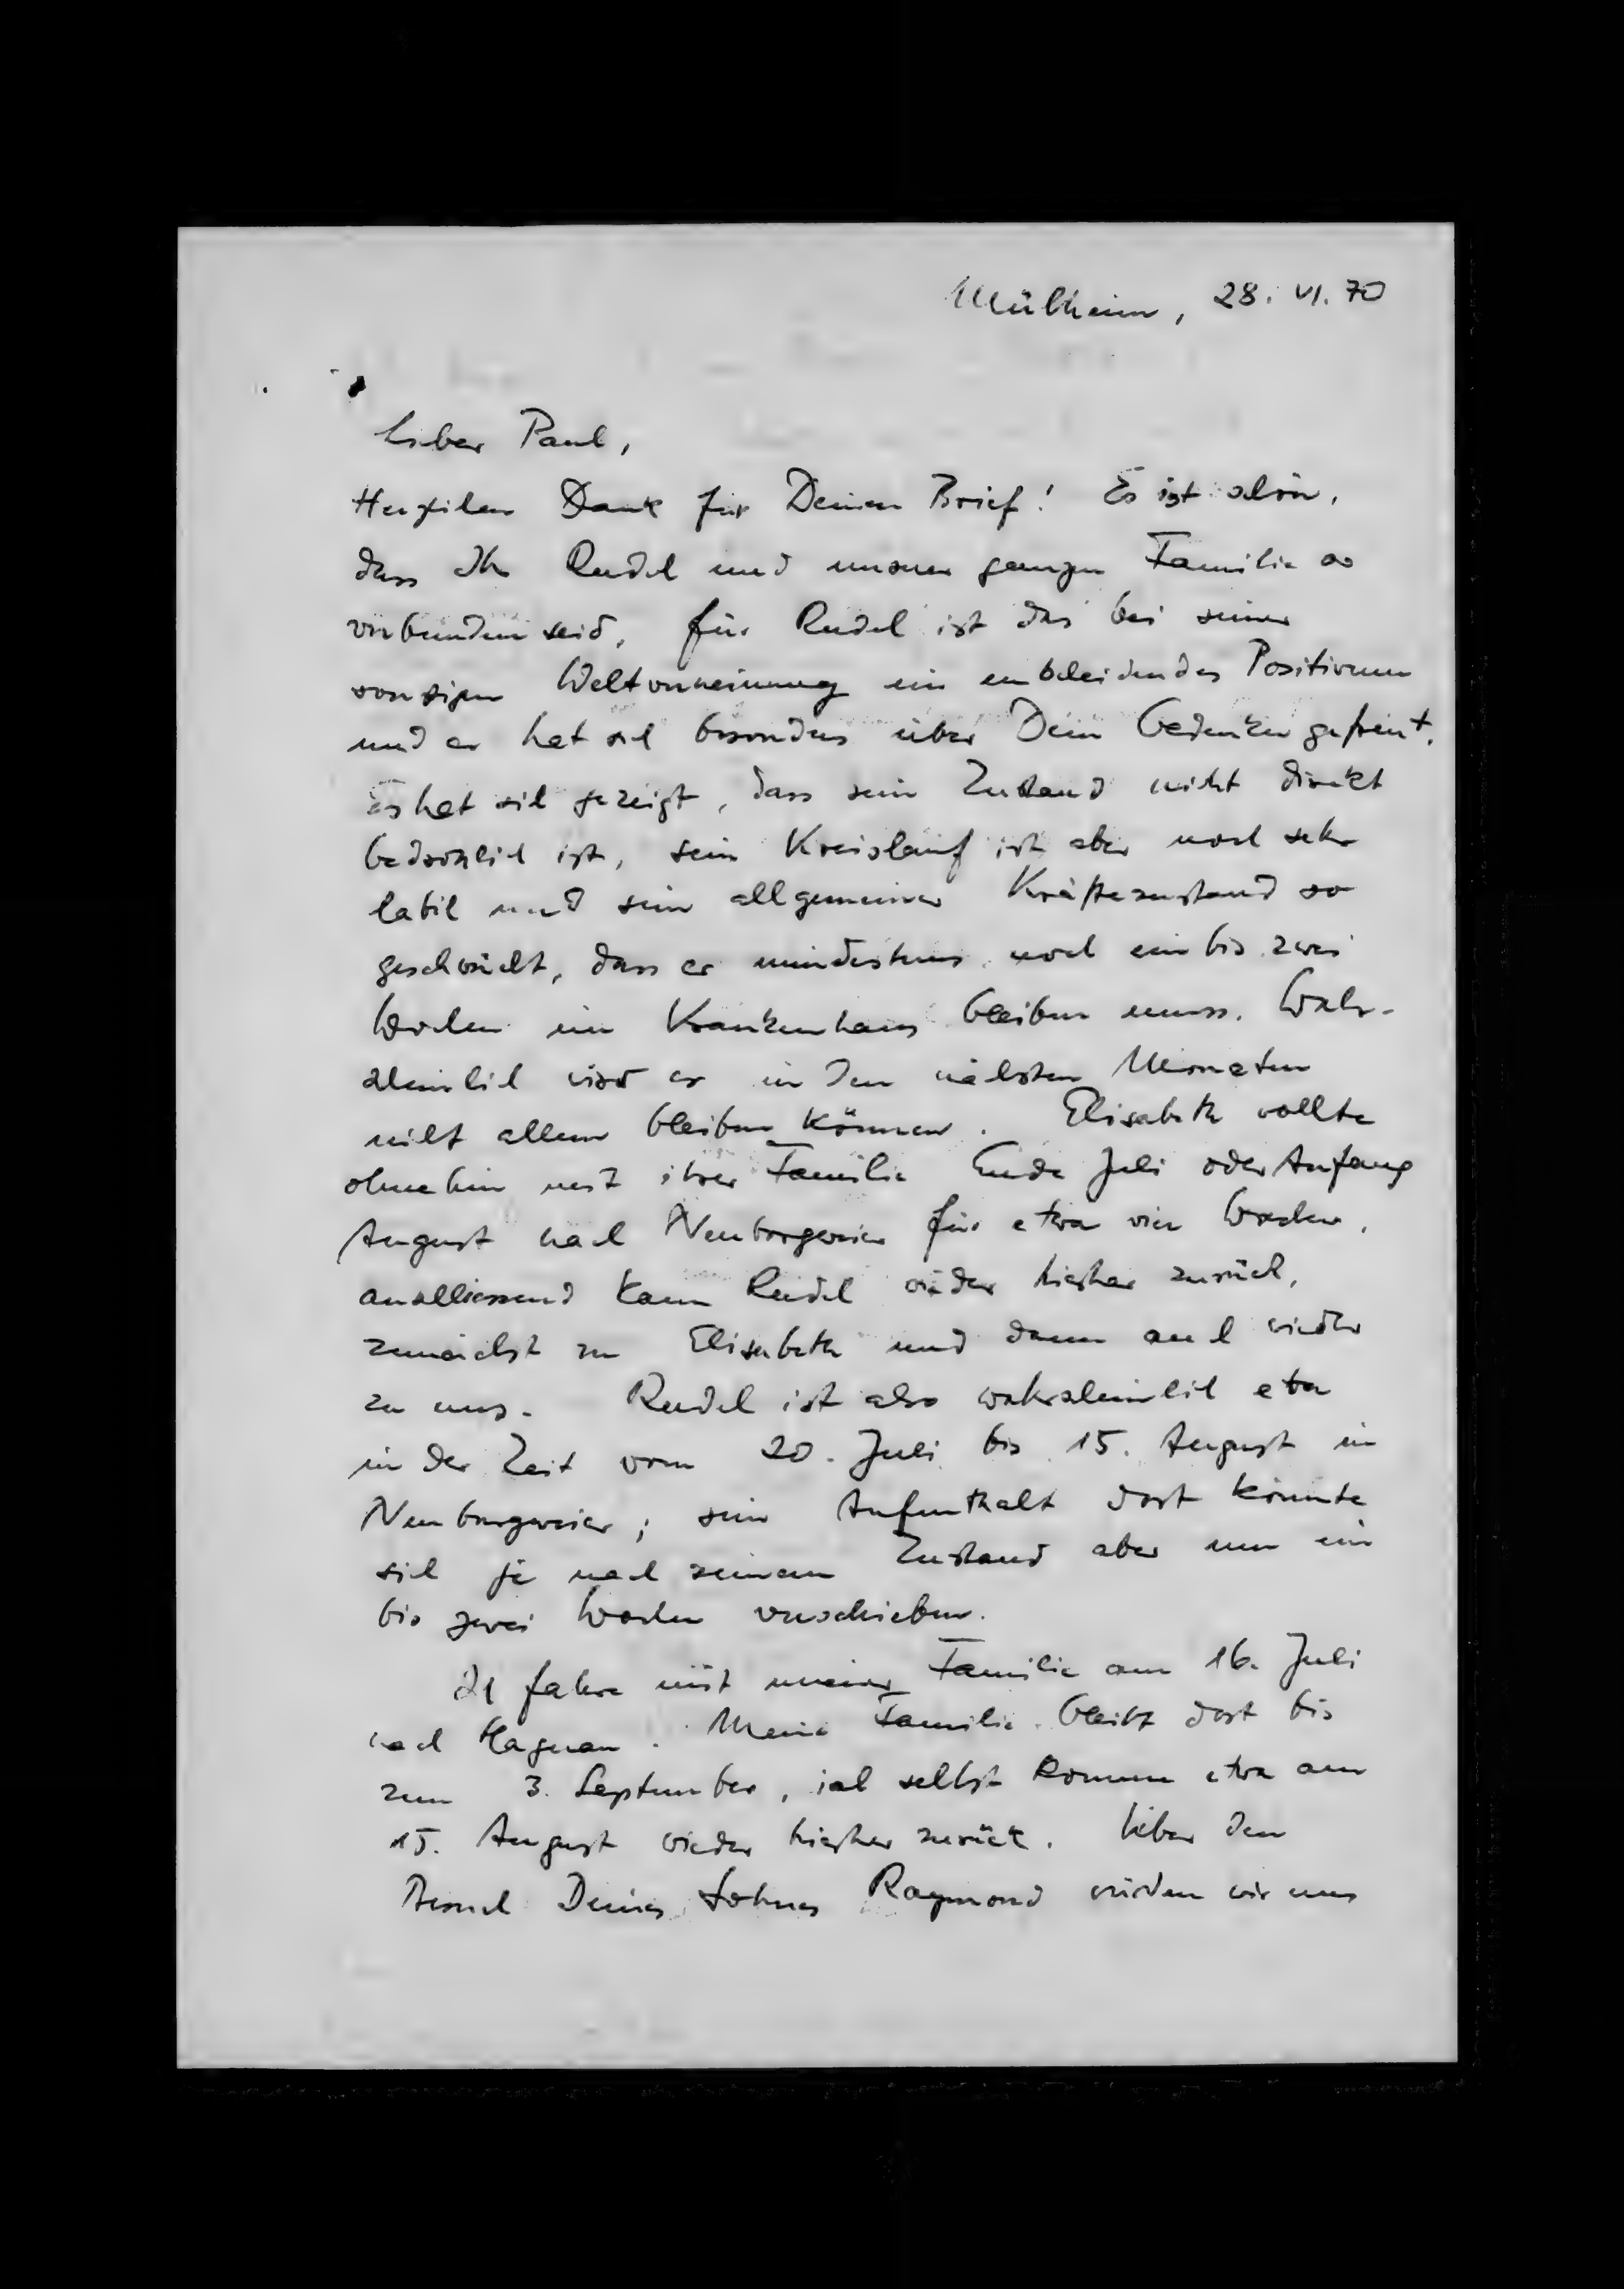 Mülheim, 28. VI. 70
Lieber Paul,
Herzlichen Dank für Deinen Brief! Es ist schön,
dass Ihr Rudel und unserer ganzen Familie so
verbunden seid. Für Rudel ist das bei seiner
sonstigen Weltverneinung ein entscheidendes Positivum
und er hat sich besonders über Dein Gedenken gefreut.
Es hat sich gezeigt, dass sein Zustand nicht direkt
bedrohlich ist, sein Kreislauf ist aber noch sehr
labil und sein allgemeiner Kräftezustand so
geschwächt, dass er mindestens noch ein bis zwei
Wochen im Krankenhaus bleiben muss. Wahr-
scheinlich wird er in den nächsten Monaten
nicht allein bleiben können. Elisabeth wollte
ohnehin mit ihrer Familie Ende Juli oder Anfang
August nach Neuburgweier für etwa vier Wochen,
anschliessend kann Rudel wieder hierher zurück,
zunächst zu Elisabeth und dann auch wieder
zu uns. Rudel ist also wahrscheinlich etwa
in der Zeit vom 20. Juli bis 15. August in
Neuburgweier; sein Aufenthalt dort könnte
sich je nach seinem Zustand aber um ein
bis zwei Wochen verschieben.
Ich fahre mit meiner Familie am 16. Juli
nach Hagnau. Meine Familie bleibt dort bis
zum 3. September, ich selbst komme etwa am
15. August wieder hierher zurück. Über den
Besuch Deines Sohnes Raymond würden wir uns